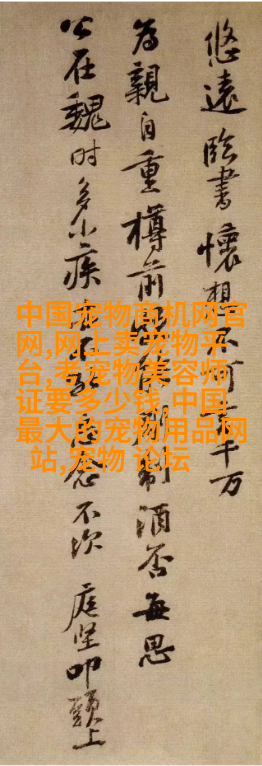 悠遠臨書懷想不可千万
為親自重樽前制酒否每思
公在魏时多小疾念不次庭坚叩頭上
中国宠物商机网官
网,网上卖宠物平
台,考宠物美容师
证要多少钱,中国
最大的宠物用品网
站,宠物 论坛